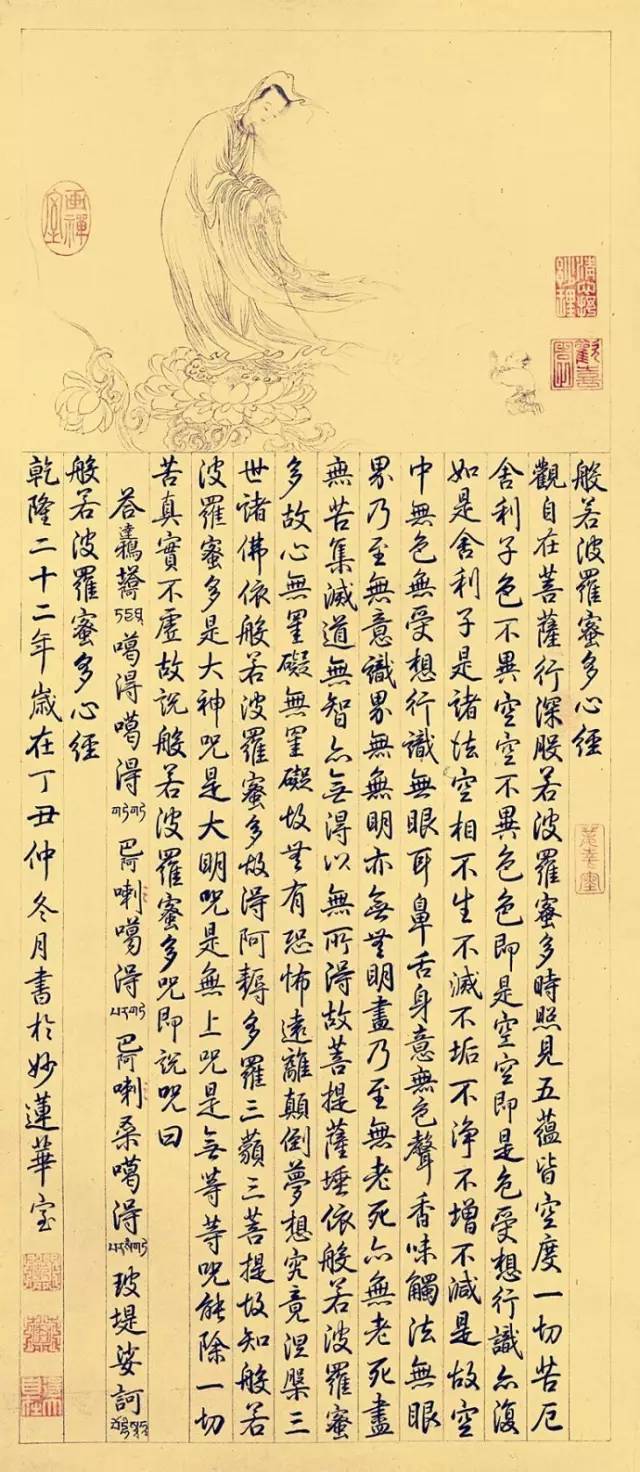 般若波羅蜜多心經
觀自在菩薩行深般若波羅蜜多時照見五蘊皆空度一切苦厄
舍利子色不異空空不異色色即是空空即是色受想行識亦復
如是舍利子是諸法空相不生不滅不垢不浄不增不減是故空
中無色無受想行識無眼耳鼻舌身意無色聲香味觸法無眼
界乃至無意識界無無明亦無無明盡乃至無老死亦無老死盡
無苦集滅道無智亦無得以無所得故菩提薩埵依般若波羅蜜
多故心無罣礙無罣礙故無有恐怖遠離顛倒夢想究竟涅槃三
世諸佛依般若波羅蜜多故得阿耨多羅三藐三菩提故知般若
波羅蜜多是大神咒是大明咒是無上咒是無等等咒能除一切
苦真實不虛故說般若波羅蜜多咒即說咒曰
噶得噶得 巴阿喇噶得 巴阿喇桑噶得 玻堤娑訶
般若波羅蜜多心經
乾隆二十二年歲在丁丑仲冬月書於妙蓮華室
畫禪室